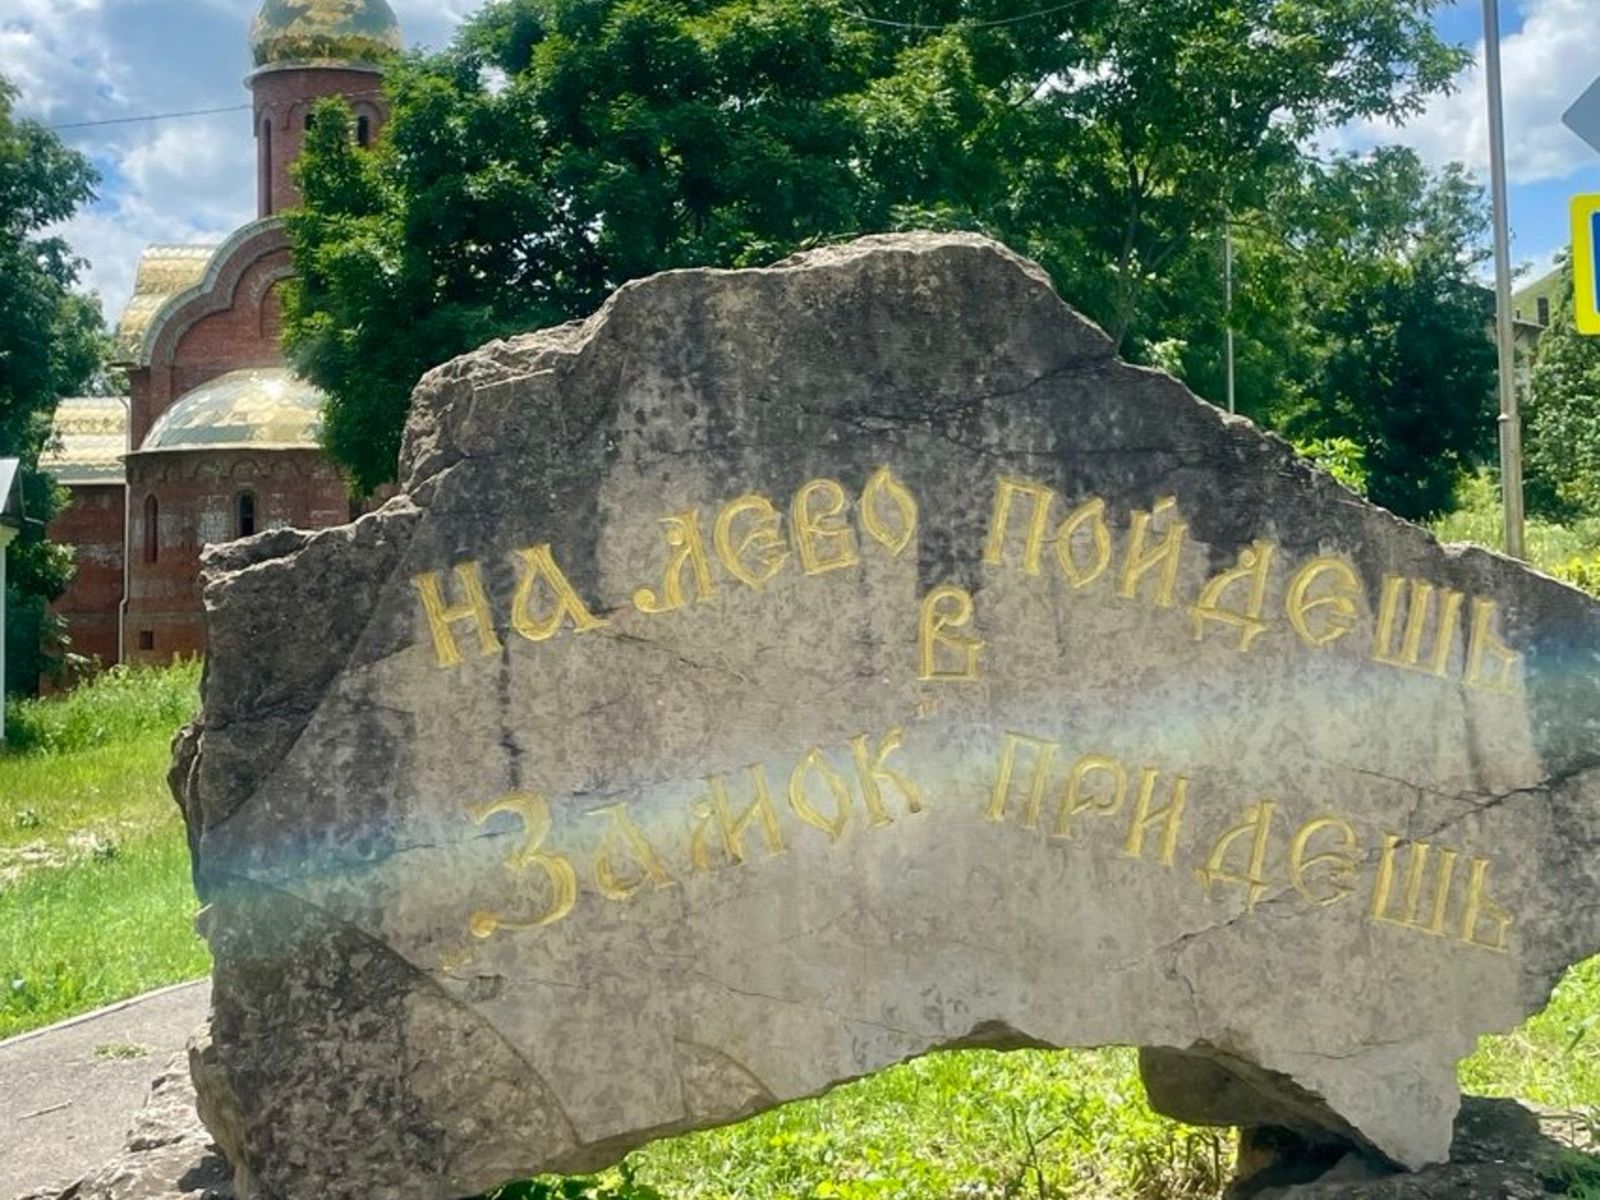 на лево пойдешь
в
Замок придешь